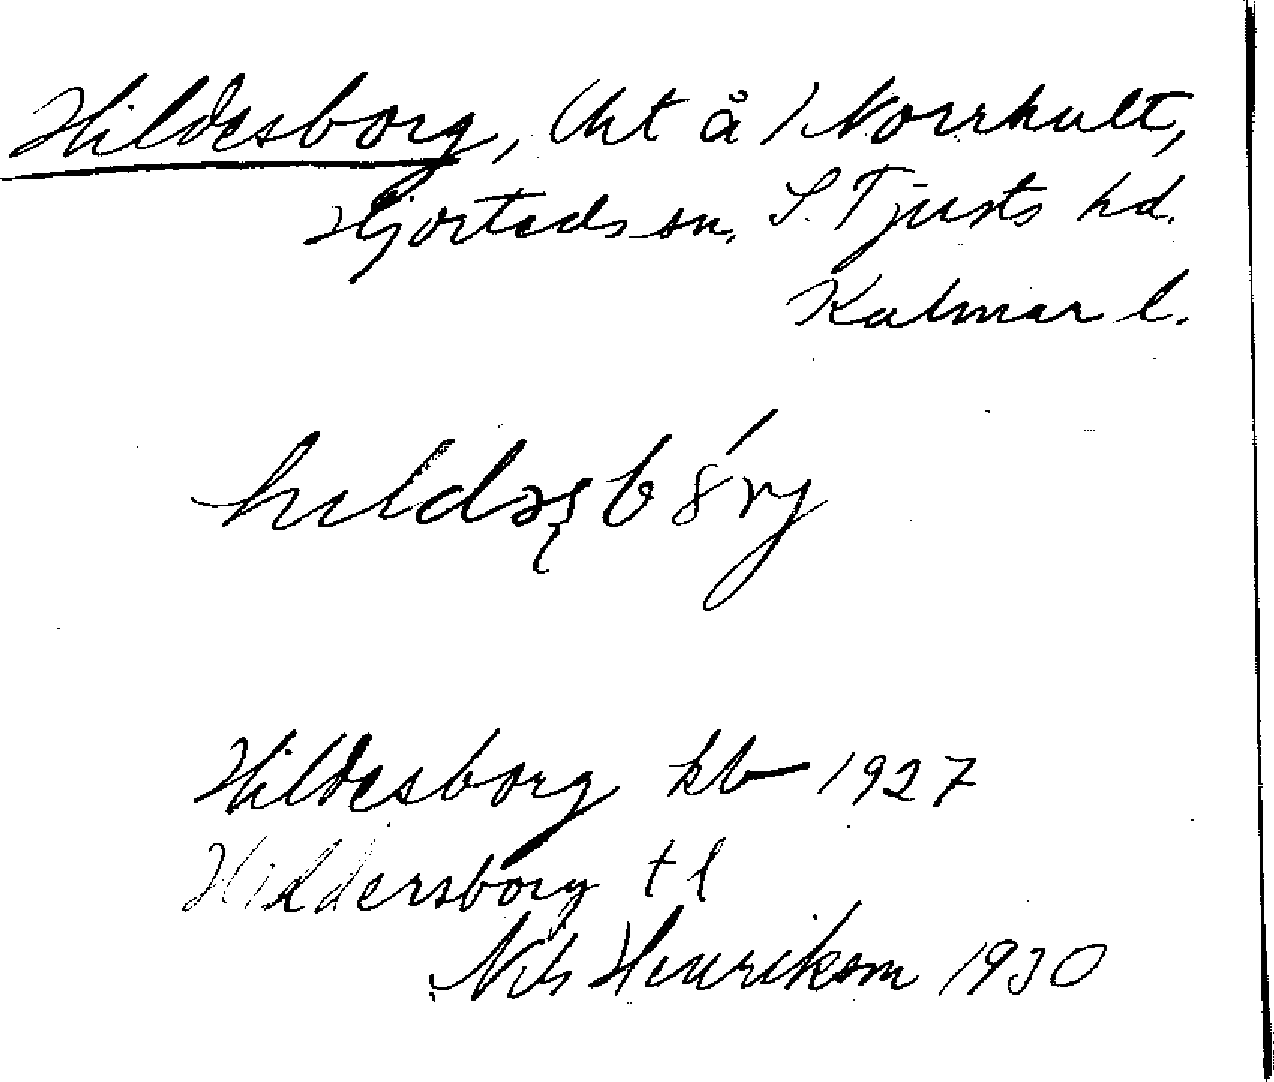 Hildesborg, (lht å) Norrhult,
Hjorteds sn, S. Tjusts hd.
Kalmar l.
Hildesborg kb 1927
Hildersborg tl
Nils Henrikson 1930